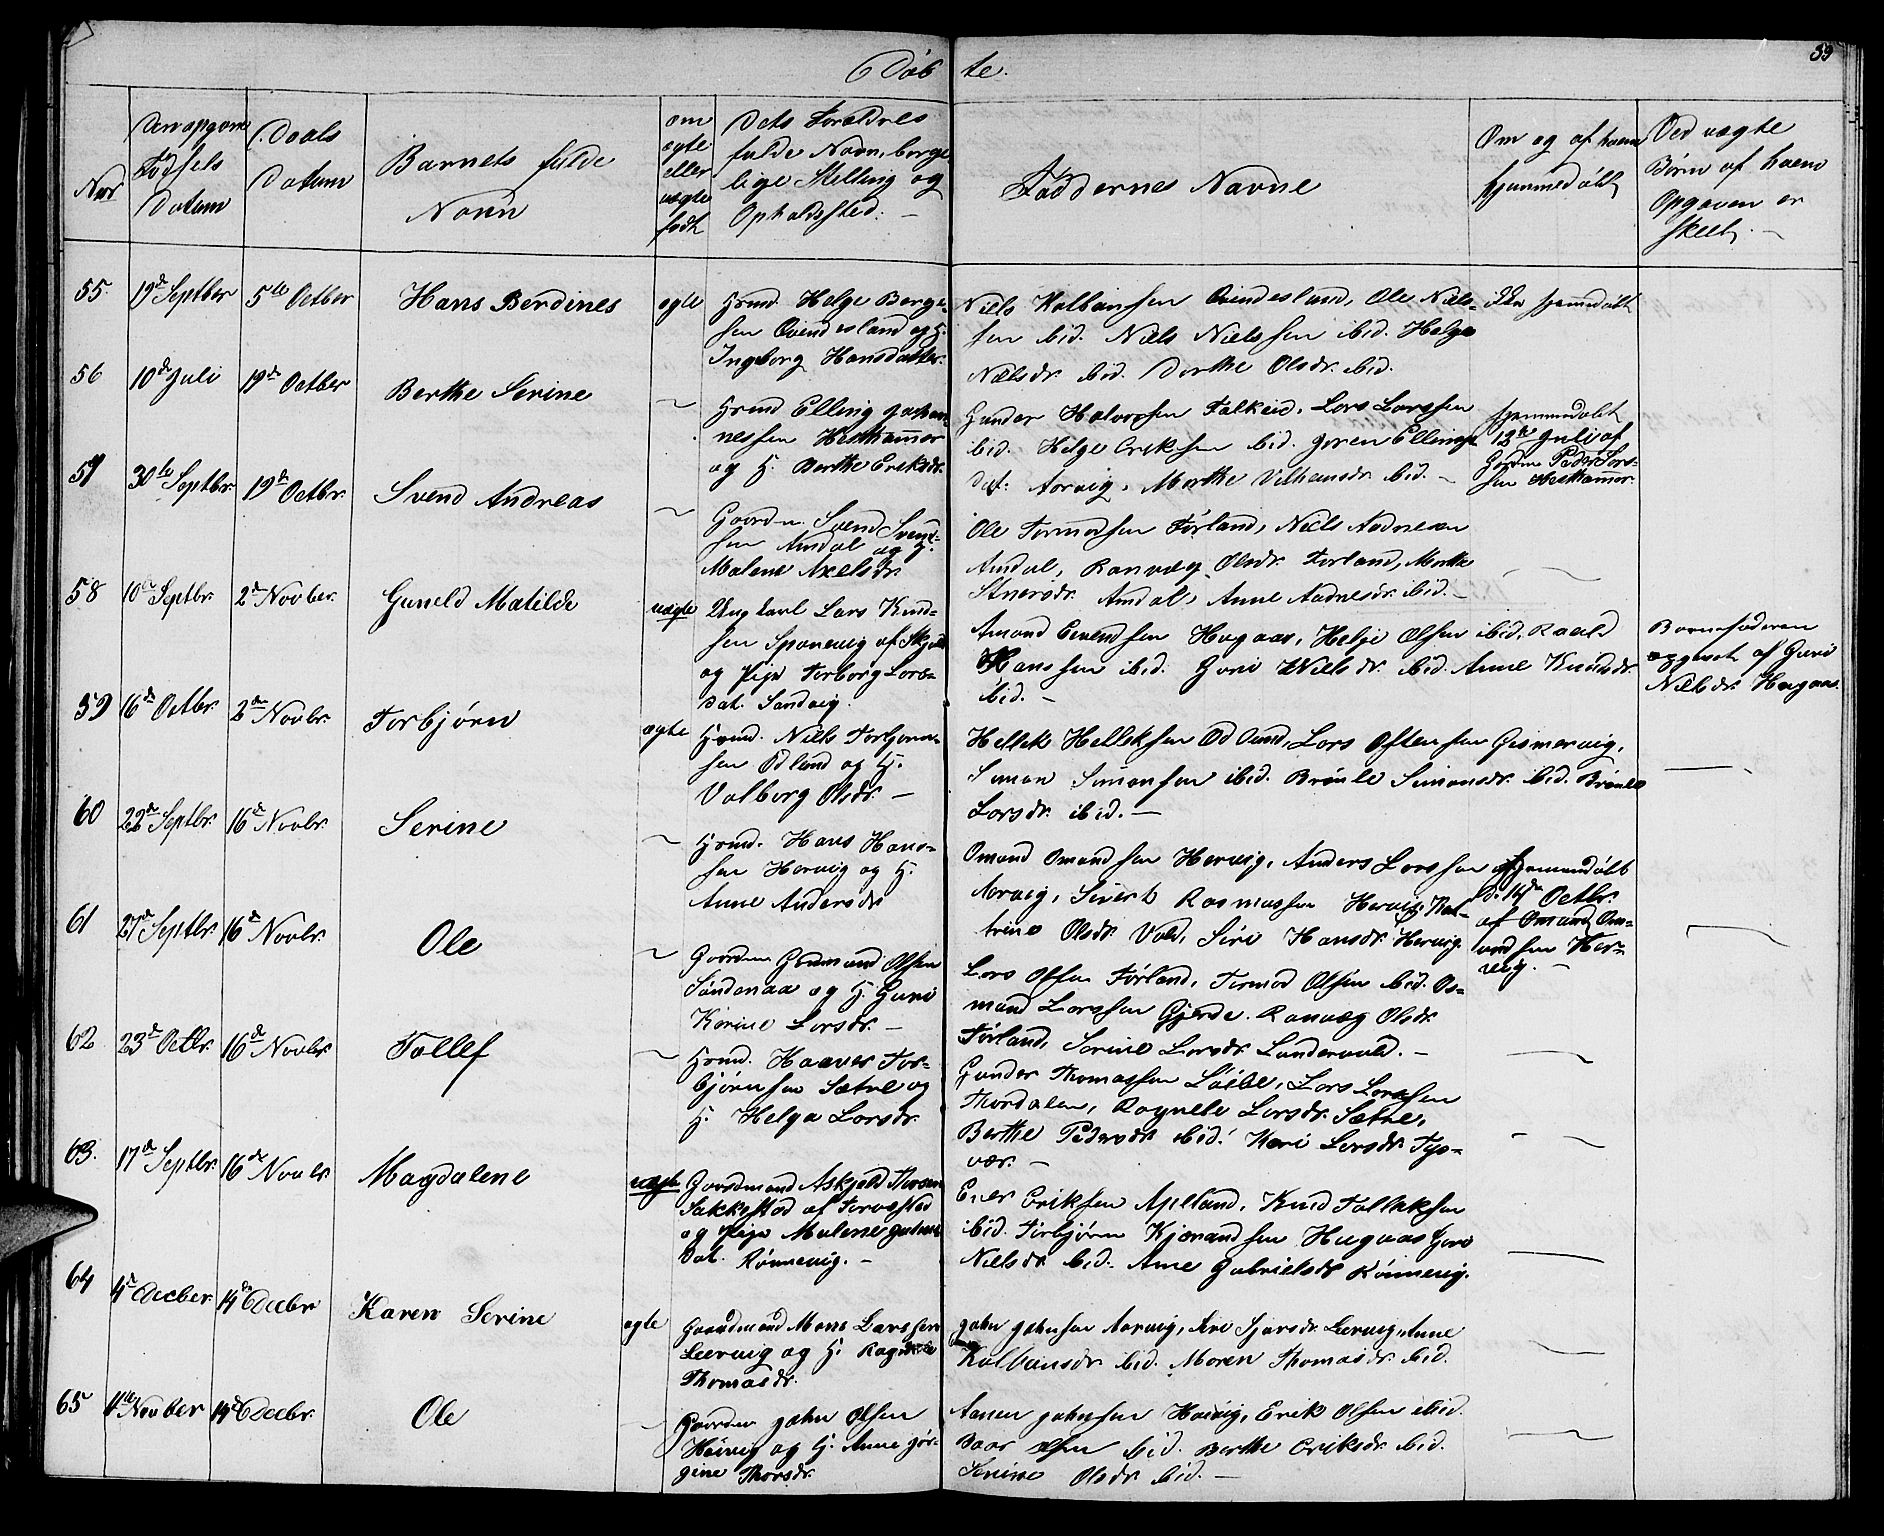 Døb te. 39
Nor
Den opgivne Fødsels Datum
Daabs Datum
Barnets fulde Navn
om ægte eller uægte født
Dets Forældres fulde Navn, borgerlige Stilling og Opholdssted. —
Faddernes Navne
Om og af hvem hjemmedøbt
Ved uægte Børn af hvem Opgaven er skeet. —
55. 19de Septber 5te Octber Hans Berdines ægte
Hmd. Helge Berge-
sen Qvindesland og H.
Ingeborg Hansdatter.
Niels Kolbeinsen Qvindesland, Ole Niels-
sen ibid. Niels Nielssen ibid. Helga
Nielsdr. ibid. Dorthe Olsdr. ibid.
Ikke hjemmedøbt
56 10de Juli 19de Octber Berthe Serine ~
Hmd Elling Johan-
nessen Hesthammer
og H. Berthe Eriksdr.
Gunder Halvorsen Falkeid, Lars Larssen
ibid. Helge Eriksen ibid. Joren Ellings
dat. Aarvig, Marthe Vilhamsdr. ibid. —
hjemmedøbt
12te Juli af
Gaardm. Peder Lars-
sen Hesthammer.
57 30te Septbr. 19de Octbr. Svend Andreas ~
Gaardm. Svend Svend-
sen Amdal og H.
Malene Axelsdr.
Ole Tormodsen Førland, Niels Aadnesen
Amdal, Ranvæg Olsdr. Førland, Marthe
Amdal, Anne Aadnesdr. ibid. —
58 10de Septbr. 2den Novber. Guneld Matilde uægte
Ungkarl Lars Knud-
sen Sponevig af Skjold
og Pige Torborg Lars-
dat. Sandvig.
Amund Eivendsen Hagaas, Helje Olsen ibid. Roald
Hanssen ibid. Guri Nielsdr. ibid. Anne Knudsdr.
ibid. —
Barnefaderen
opgivet af Guri
Nielsdr. Hagaas.
59 16de Octbr. 2den Novbr. Torbjørn ægte
Hmd. Niels Torbjørn-
sen Odland og H.
Valborg Olsdr. —
Hellek Helleksen Odland, Lars Ostensen Gismervig,
Simon Simonsen ibid. Brønle Simonsdr. ibid. Brønle
Larsdr. ibid. —
60 22de Septbr. 16de Novbr. Serine ~
Hmd. Hans Hans-
sen Hervig og H.
Anne Andersdr
Omund Omundsen Hervig, Anders Larssen
Aarvig, Sivert Rasmussen Hervig, Kat-
trine Olsdr. Vold, Siri Hansdr. Hervig.
hjemmedøbt
d. 14de Octbr.
af Omund Om-
undsen Her-
vig. —
61 27de Septbr. 16de Novbr. Ole ~
Gaardm Gudmund Olsen
Søndenaa og H. Guri
Karine Larsdr. —
Lars Olsen Førland, Tormod Olsen ibid. Os-
mund Larssen Gjerde. Ranvæg Olsdr.
Førland, Serine Larsdr. Sandervold. —
62 23de Octbr. 16de Novbr. Tollef ~
Hmd. Haaver Tor-
bjørnsen Sætre og
H. Helga Larsdr.
Gunder Thomassen Løibe, Lars Larssen
Thordalen, Ragnele Larsdr. Sætre,
Berthe Pedersdr. ibid. Kari Larsdr. Tys-
vær. —
63. 17de Septbr. 16de Novbr. Magdalene uægte
Gaardmand Askjeld Thorsen
Sakkestad af Torvestad
og Pige Malene
Dat. Rønnevig. —
Ener Eriksen Apelland, Knud Tollefsen
ibid. Torbjørn Kjørandsen Hagaas Guro
Nielsdr. ibid. Ane Gabrielsdr. Rønnevig.
64 4de Decber. 14de Decbr Karen Serine ægte
Gaardmand Mons Larssen
Leervig og H. Ragnele
Thomasdr.
John Johnsen Aarvig, Siri Sjursdr. Leervig, Anne
Kolbeinsdr. ibid. Maren Thomasdr. ibid.
65 4de Novber 14de Decbr. Ole ~
Gaardm John Olsen
Høivig og H. Anne Jør-
gine Thorsdr.
Aanen Johnsen Høivig, Erik Olsen ibid.
Baar Olsen ibid. Berthe Eriksdr. ibid.
Serine Olsdr. ibid. —